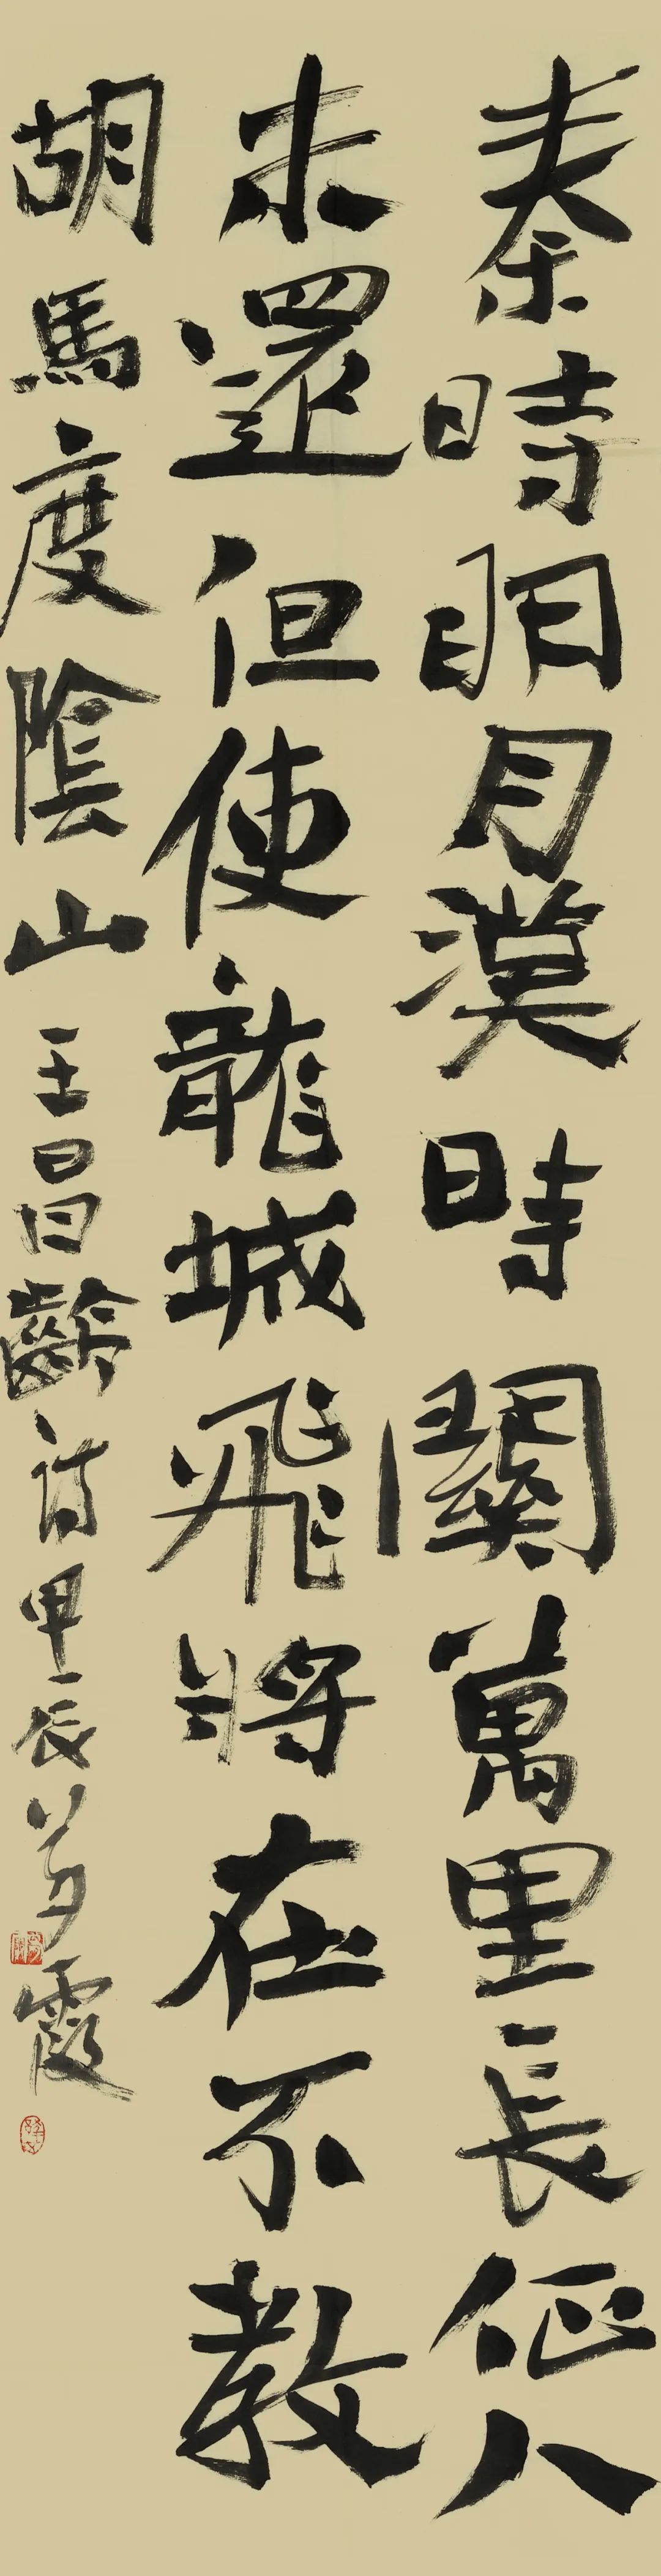 秦時明月漢時關萬里長征人
未還但使龍城飛將在不教
胡馬度陰山 王昌齡詩甲辰芳霞